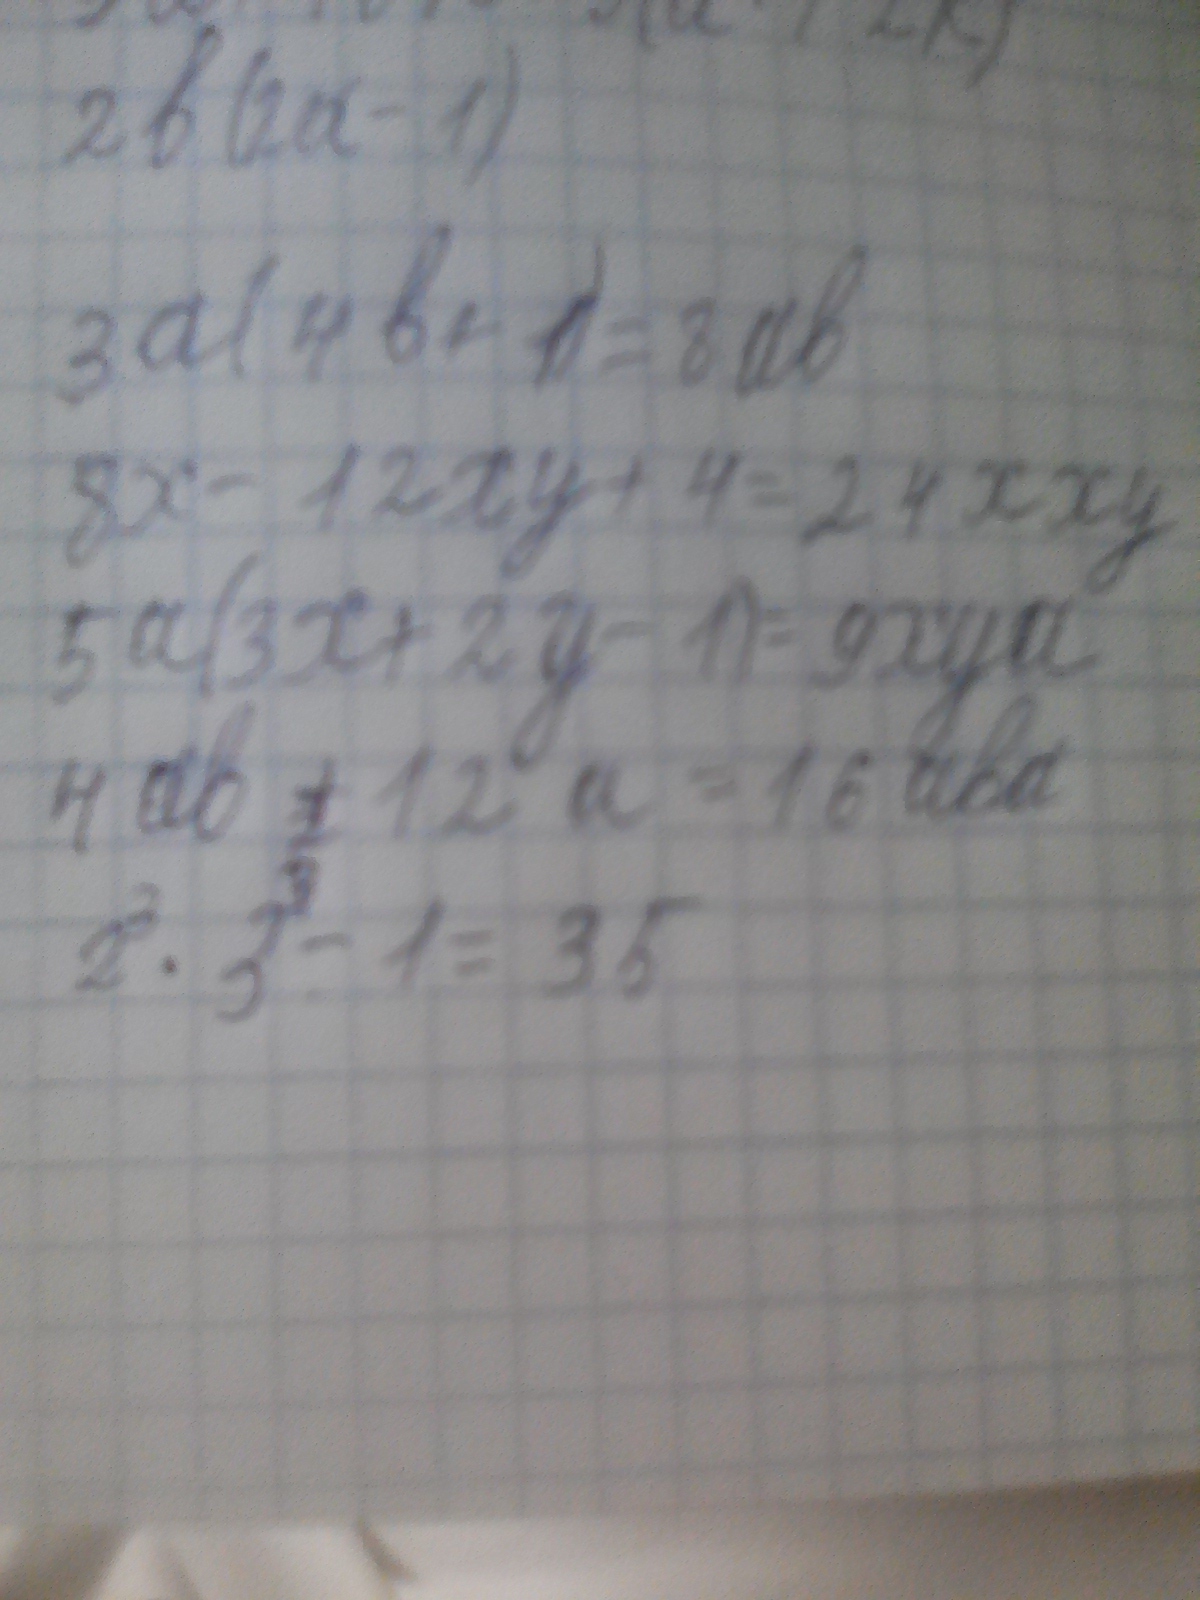 2b(2a - 1)
3a(4b + 1) = 8ab
8x - 12xy + 4 = 24xxy
5a(3x + 2y - 1) = 9xya
4ab + 12a = 16aba
2² · 3³ - 1 = 35